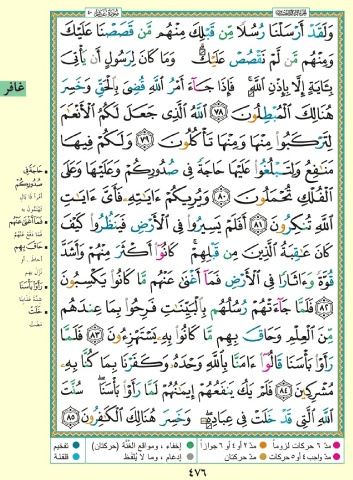 سُورَةُ غَافِرٍ ٤٠
غافر
وَلَقَدْ أَرْسَلْنَا رُسُلًا مِّن قَبْلِكَ مِنْهُم مَّن قَصَصْنَا عَلَيْكَ
وَمِنْهُم مَّن لَّمْ نَقْصُصْ عَلَيْكَ ۗ وَمَا كَانَ لِرَسُولٍ أَن يَأْتِيَ
بِـَٔايَةٍ إِلَّا بِإِذْنِ ٱللَّهِ ۚ فَإِذَا جَآءَ أَمْرُ ٱللَّهِ قُضِيَ بِٱلْحَقِّ وَخَسِرَ
هُنَالِكَ ٱلْمُبْطِلُونَ ٧٨ ٱللَّهُ ٱلَّذِي جَعَلَ لَكُمُ ٱلْأَنْعَٰمَ
لِتَرْكَبُوا۟ مِنْهَا وَمِنْهَا تَأْكُلُونَ ٧٩ وَلَكُمْ فِيهَا
مَنَٰفِعُ وَلِتَبْلُغُوا۟ عَلَيْهَا حَاجَةً فِي صُدُورِكُمْ وَعَلَيْهَا وَعَلَى
ٱلْفُلْكِ تُحْمَلُونَ ٨٠ وَيُرِيكُمْ ءَايَٰتِهِۦ فَأَيَّ ءَايَٰتِ
ٱللَّهِ تُنكِرُونَ ٨١ أَفَلَمْ يَسِيرُوا۟ فِي ٱلْأَرْضِ فَيَنظُرُوا۟ كَيْفَ
كَانَ عَٰقِبَةُ ٱلَّذِينَ مِن قَبْلِهِمْ ۚ كَانُوٓا۟ أَكْثَرَ مِنْهُمْ وَأَشَدَّ
قُوَّةً وَءَاثَارًا فِي ٱلْأَرْضِ فَمَآ أَغْنَىٰ عَنْهُم مَّا كَانُوا۟ يَكْسِبُونَ
٨٢ فَلَمَّا جَآءَتْهُمْ رُسُلُهُم بِٱلْبَيِّنَٰتِ فَرِحُوا۟ بِمَا عِندَهُم
مِّنَ ٱلْعِلْمِ وَحَاقَ بِهِم مَّا كَانُوا۟ بِهِۦ يَسْتَهْزِءُونَ ٨٣ فَلَمَّا
رَأَوْا۟ بَأْسَنَا قَالُوٓا۟ ءَامَنَّا بِٱللَّهِ وَحْدَهُۥ وَكَفَرْنَا بِمَا كُنَّا بِهِۦ
مُشْرِكِينَ ٨٤ فَلَمْ يَكُ يَنفَعُهُمْ إِيمَٰنُهُمْ لَمَّا رَأَوْا۟ بَأْسَنَا ۖ سُنَّتَ
ٱللَّهِ ٱلَّتِي قَدْ خَلَتْ فِي عِبَادِهِۦ ۖ وَخَسِرَ هُنَالِكَ ٱلْكَٰفِرُونَ ٨٥
حَاجَةً فِي
صُدُورِكُمْ
فَمَا أَغْنَى عَنْهُمْ
حَاقَ بِهِم
رَأَوْا بَأْسَنَا
خَلَتْ
مضت
مدّ ٦ حركات لزوماً مدّ ٢ أو ٤ أو ٦ جوازاً إخفاء، ومواقع الغُنَّة (حركتان) تفخيم
مدّ واجب ٤ أو ٥ حركات مدّ حركتان إدغام، وما لا يُلفَظ قلقلة
٤٧٦